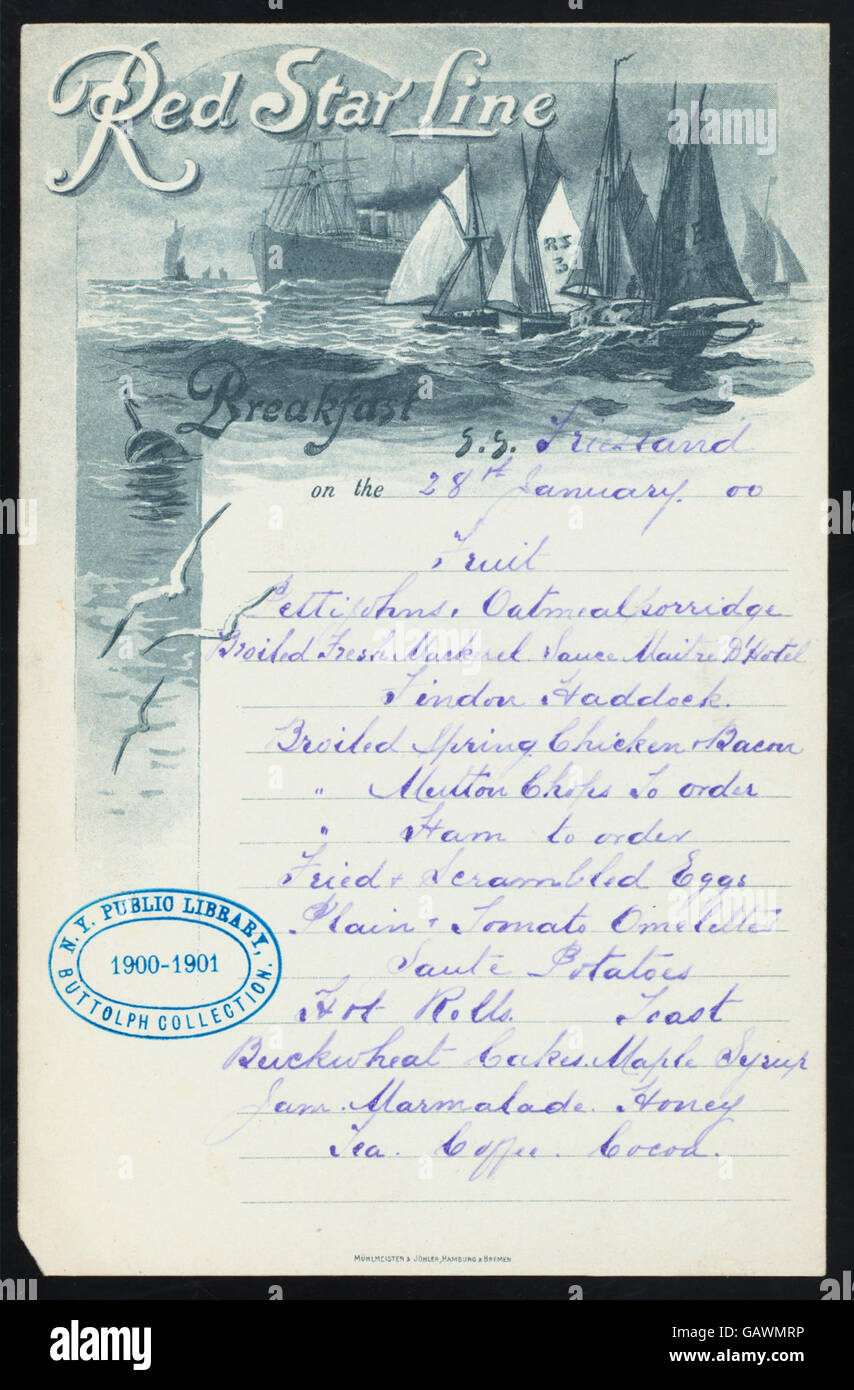 Red Star Line
RS
3
Breakfast
S.S. Friesland
on the 28st January. 00
Fruit
Pettijohns. Oatmeal Porridge
Broiled Fresh Mackerel. Sauce Maitre D'Hotel
Findon Haddock.
Broiled Spring Chicken + Bacon
" Mutton Chops To order
" Ham to order
Fried + Scrambled Eggs
Plain + Tomato Omelettes
Sauté Potatoes
Hot Rolls. Toast
Buckwheat Cakes. Maple Syrup
Jam. Marmalade. Honey
Tea. Coffee. Cocoa.
N. Y. PUBLIC LIBRARY,
1900-1901
BUTTOLPH COLLECTION.
MÜHLMEISTER & JOHLER, HAMBURG & BREMEN
alamy
Image ID: GAWMRP
www.alamy.com